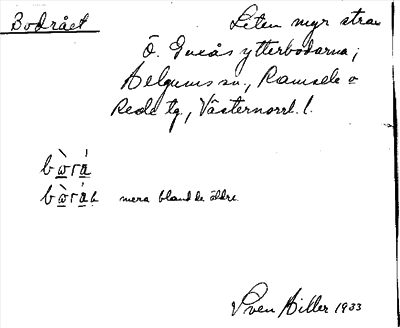 Bodrået
Liten myr strax
Ö. Gneås ytterbodarna;
Helgums sn., Ramsele o
Resele tg., Västernorrl. l.
bωrá
bωrát mera bland de äldre
Sven Hiller 1933